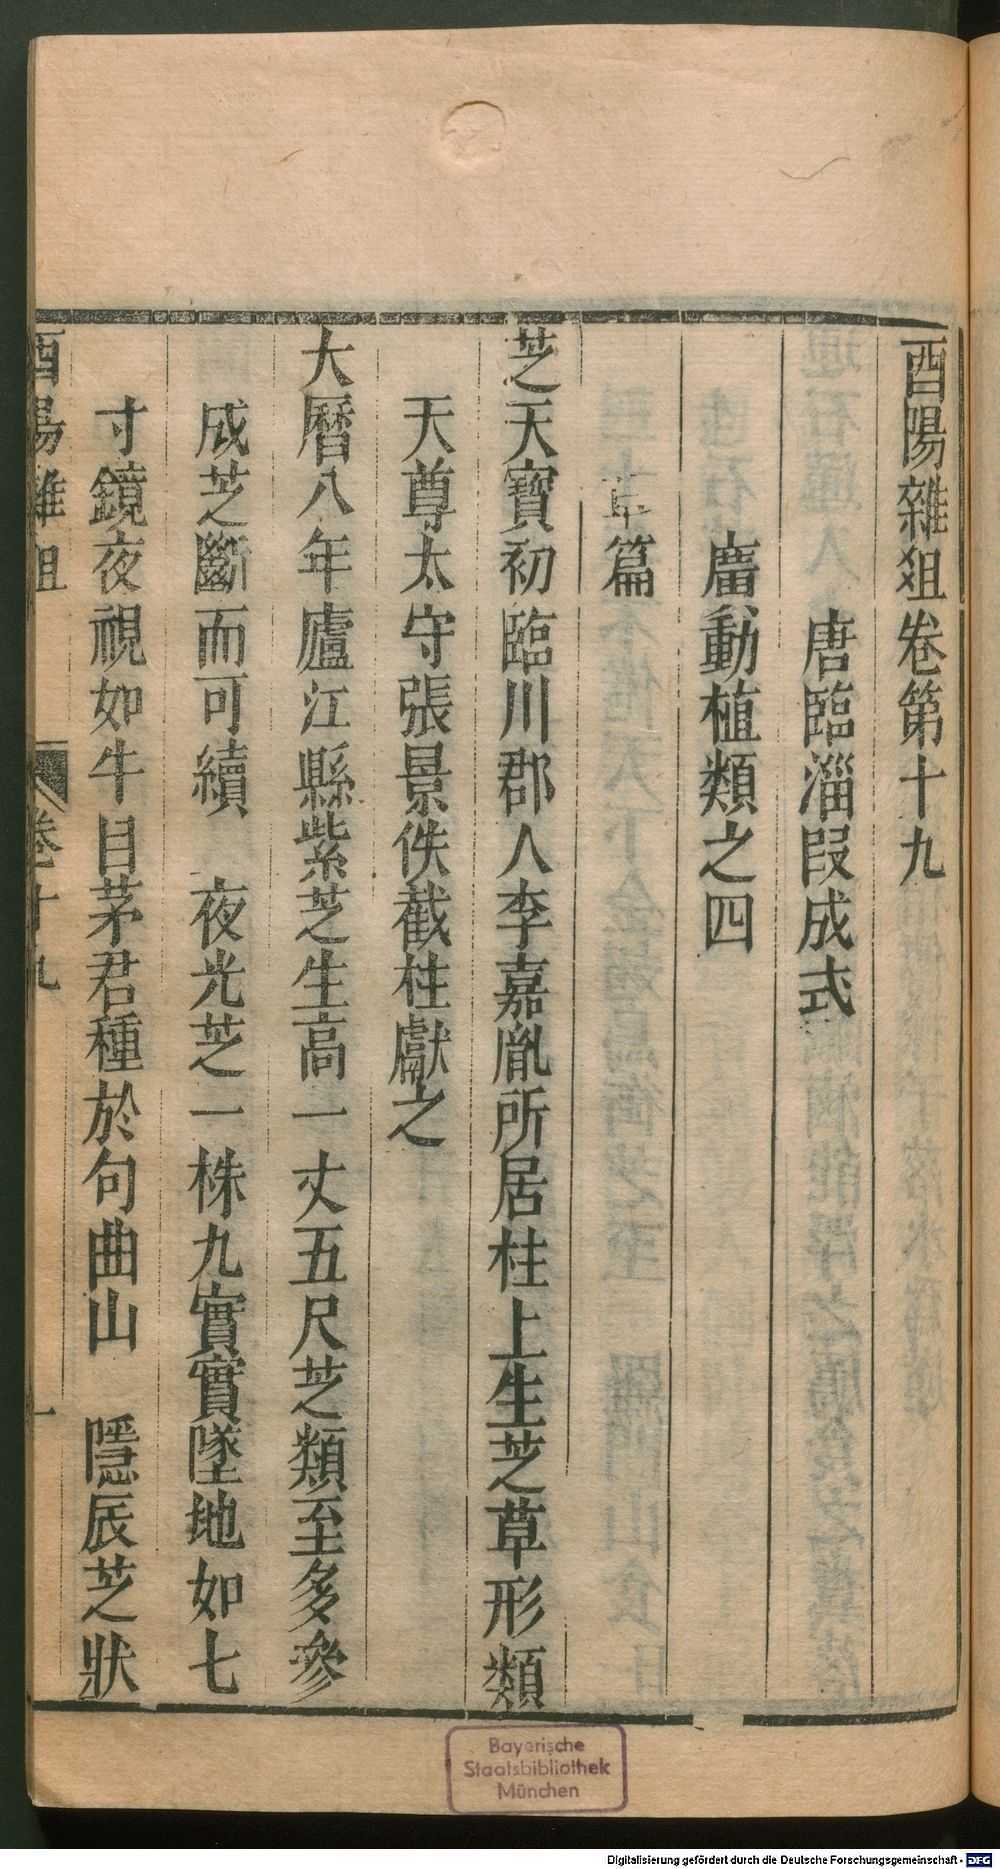 酉陽雜俎卷第十九
唐臨淄段成式
廣動植類之四
草篇
芝天寶初臨川郡人李嘉胤所居柱上生芝草形類
天尊太守張景佚截柱獻之
大曆八年廬江縣紫芝生高一丈五尺芝類至多參
成芝斷而可續　夜光芝一株九實實墜地如七
寸鏡夜視如牛目茅君種於句曲山　隱辰芝狀
酉陽雜俎　卷十九　一
Bayerische
Staatsbibliothek
München
Digitalisierung gefördert durch die Deutsche Forschungsgemeinschaft - DFG